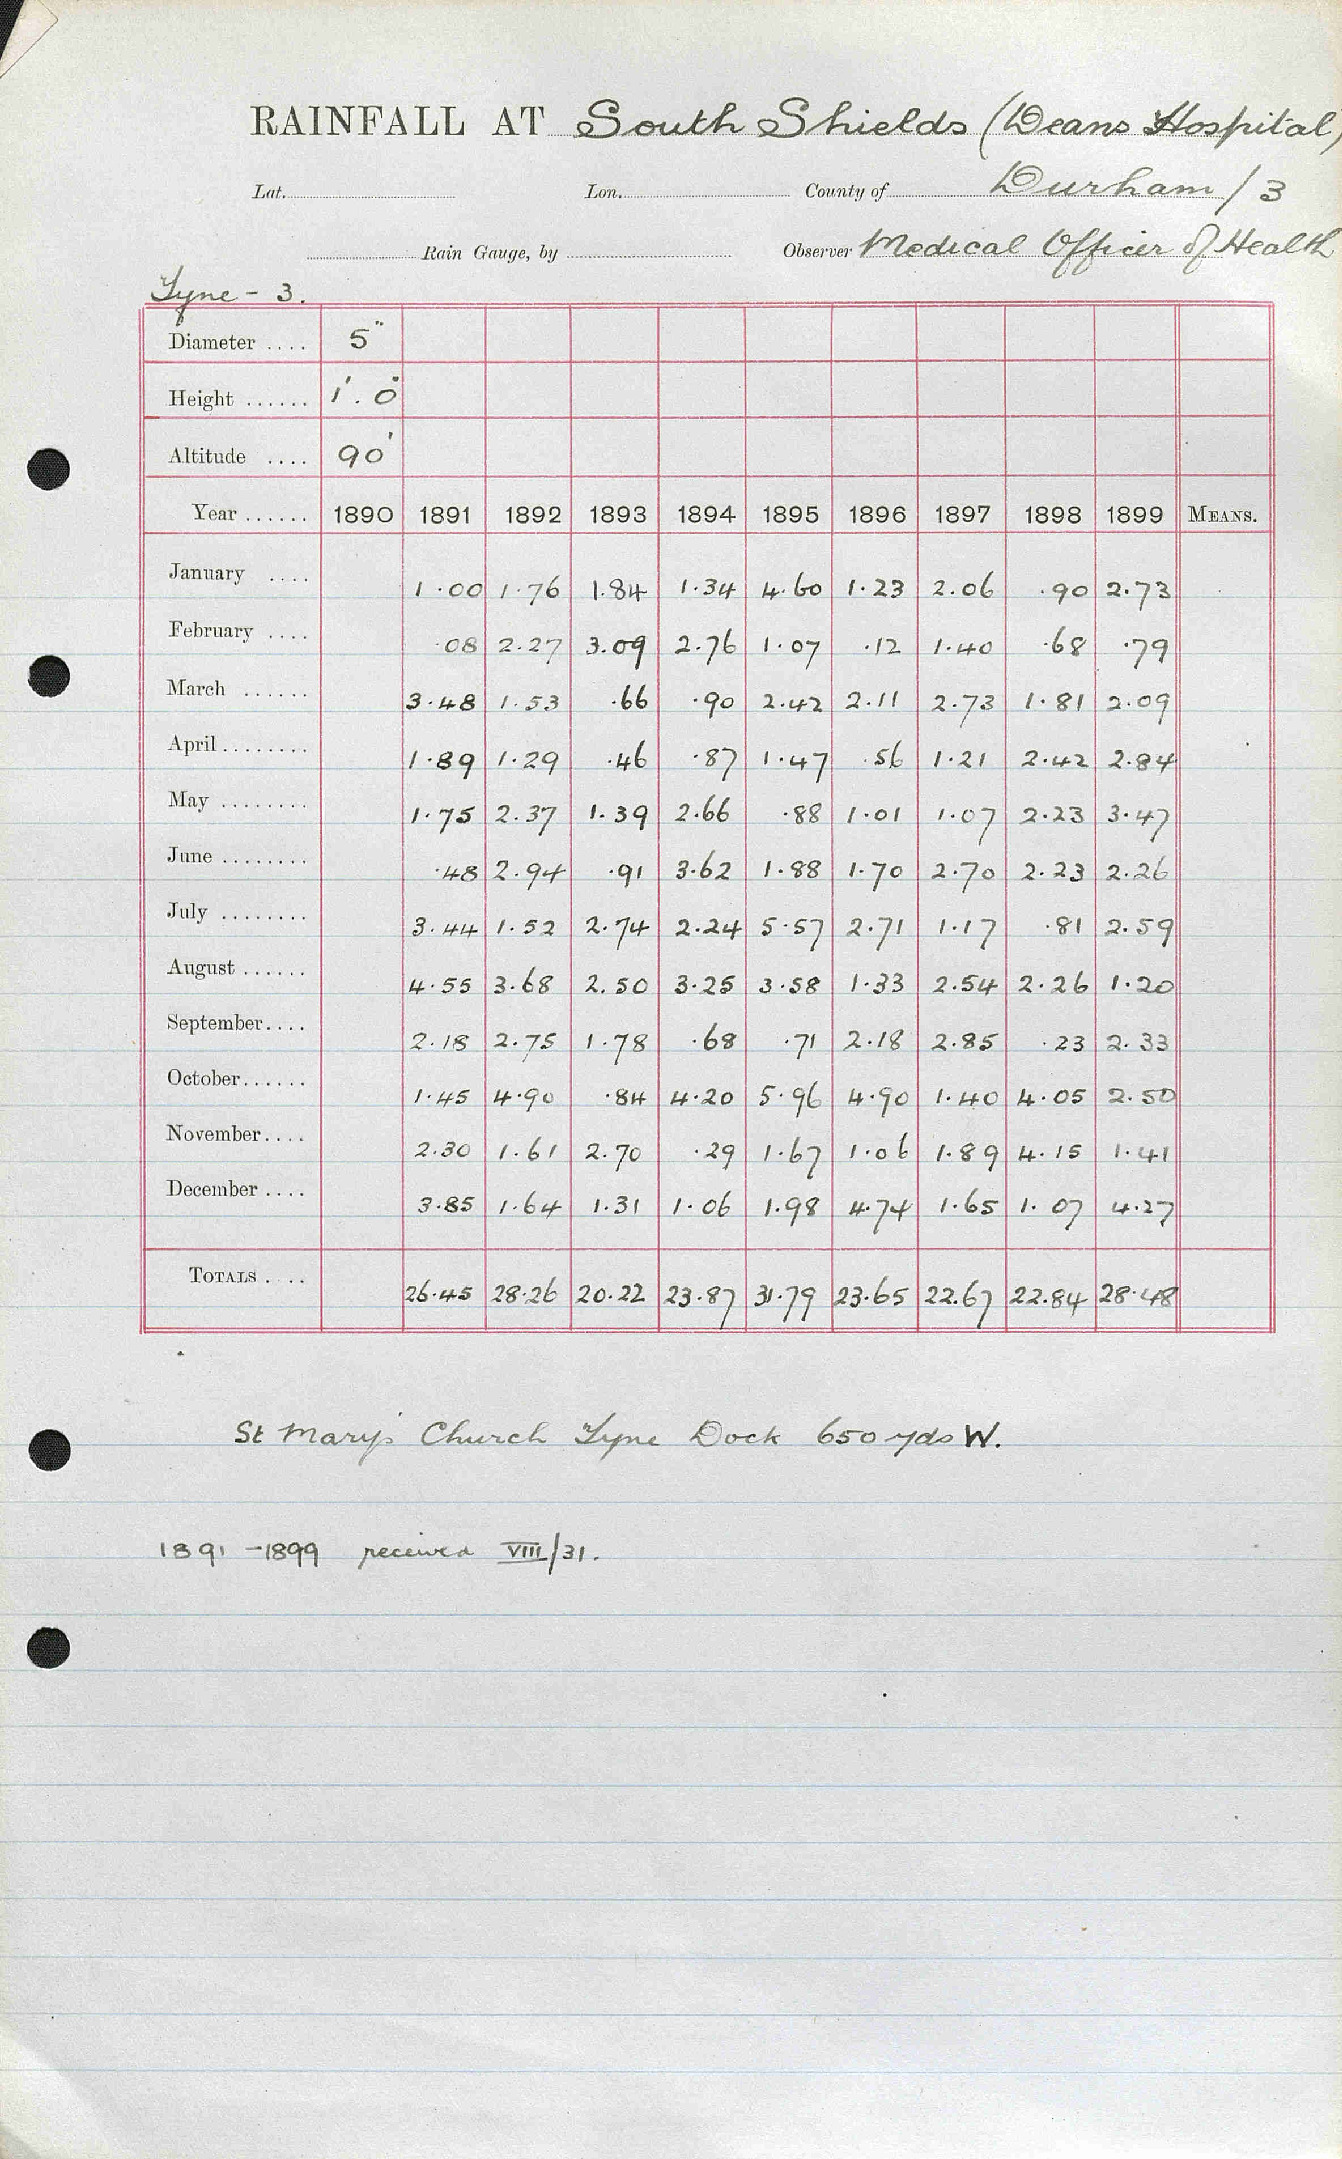 RAINFALL AT South Shields (Deans Hospital)
Lat. Lon. County of Durham / 3
Rain Gauge, by Observer Medical Officer of Health
Tyne - 3.
Diameter .... 5"
Height ...... 1'. 0"
Altitude .... 90'
Year ...... 1890 1891 1892 1893 1894 1895 1896 1897 1898 1899 MEANS.
January .... 1.00 1.76 1.84 1.34 4.60 1.23 2.06 .90 2.73
February .... .08 2.27 3.09 2.76 1.07 .12 1.40 .68 .79
March ...... 3.48 1.53 .66 .90 2.42 2.11 2.73 1.81 2.09
April ........ 1.89 1.29 .46 .87 1.47 .56 1.21 2.42 2.84
May ........ 1.75 2.37 1.39 2.66 .88 1.01 1.07 2.23 3.47
June ........ .48 2.94 .91 3.62 1.88 1.70 2.70 2.23 2.26
July ........ 3.44 1.52 2.74 2.24 5.57 2.71 1.17 .81 2.59
August ...... 4.55 3.68 2.50 3.25 3.58 1.33 2.54 2.26 1.20
September .... 2.18 2.75 1.78 .68 .71 2.18 2.85 .23 2.33
October ...... 1.45 4.90 .84 4.20 5.96 4.90 1.40 4.05 2.50
November .... 2.30 1.61 2.70 .29 1.67 1.06 1.89 4.15 1.41
December .... 3.85 1.64 1.31 1.06 1.98 4.74 1.65 1.07 4.27
TOTALS .... 26.45 28.26 20.22 23.87 31.79 23.65 22.67 22.84 28.48
St Mary's Church Tyne Dock 650 yds W.
1891 - 1899 received VIII/31.